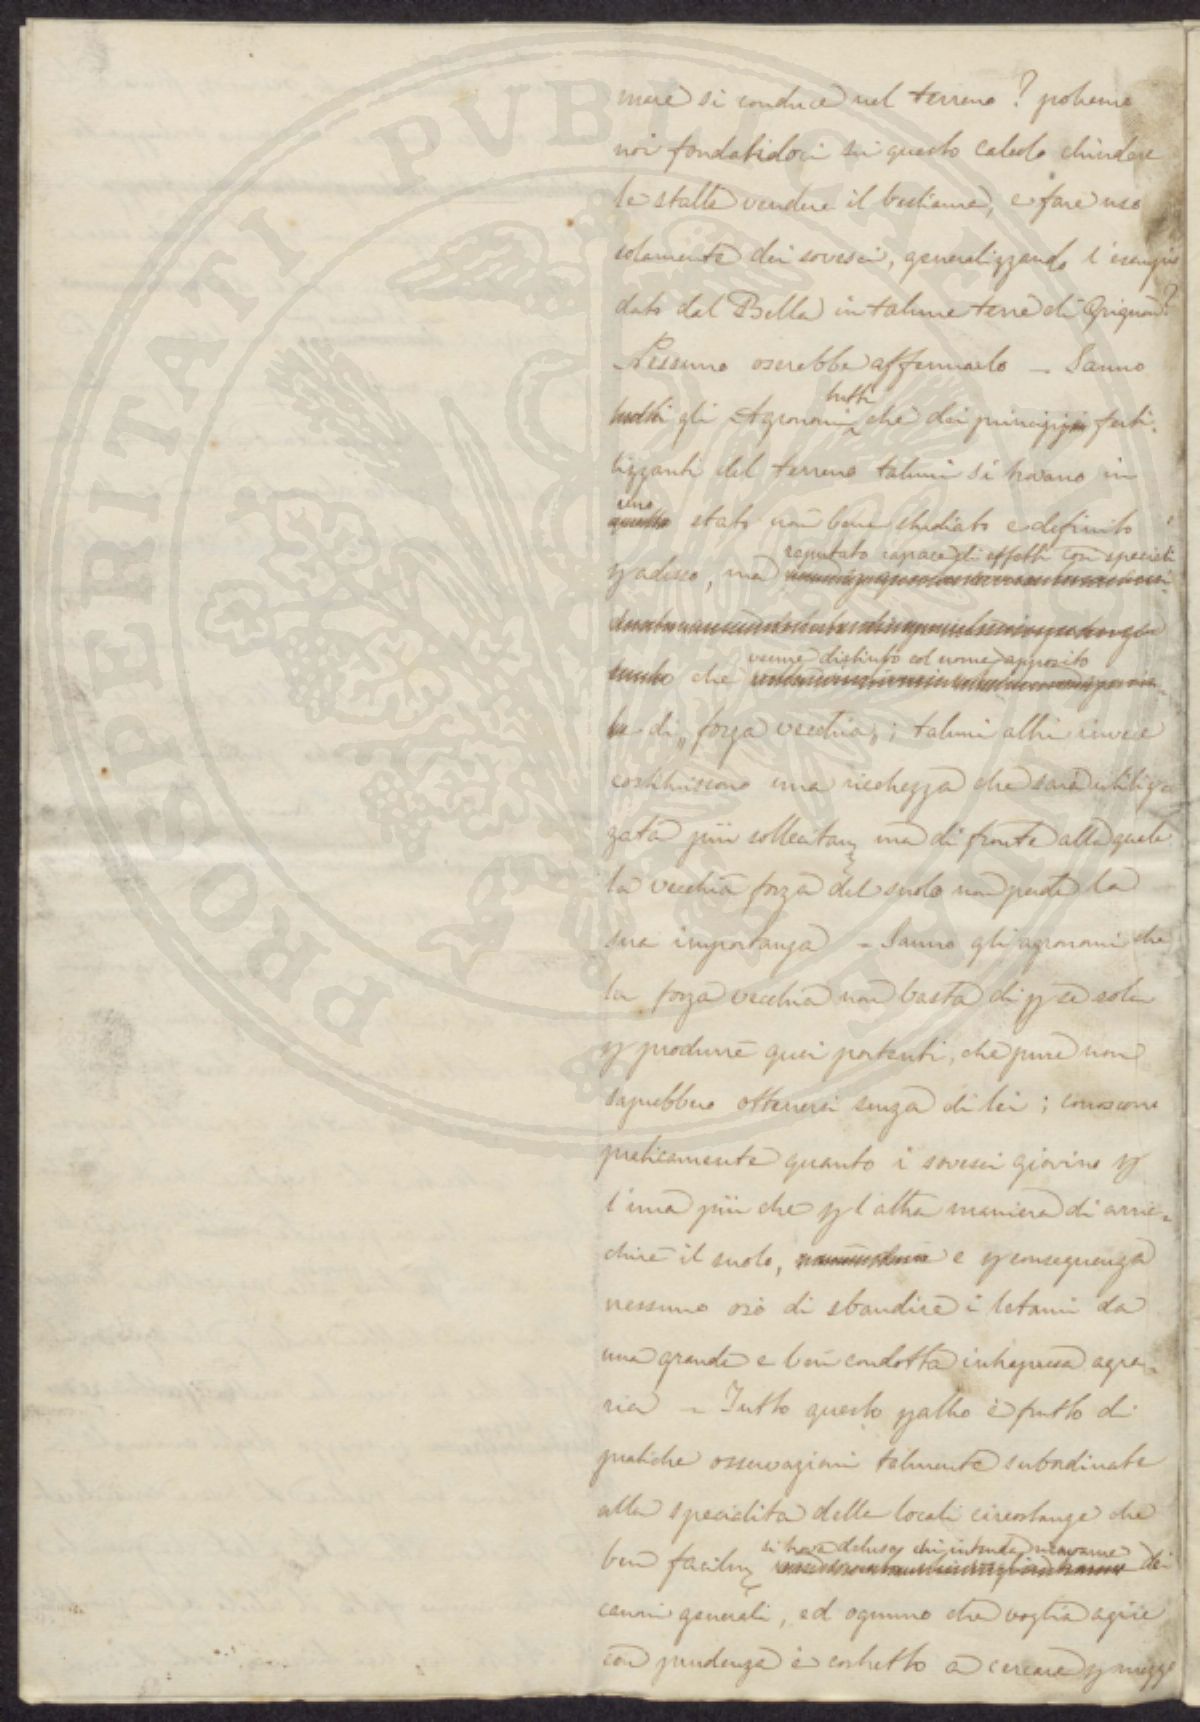 mare si conduce nel terreno? potremo
noi fondandoci su questo calcolo chiudere
le stalle vendere il bestiame, e fare uso
solamente dei sovesci, generalizzando l'esempio
dato dal Bella in talune terre di Grignon?
Nessuno oserebbe affermarlo – Sanno
gli Agronomi tutti che dei principj ferti-
lizzanti del terreno taluni si trovano in
uno stato non bene studiato e definito
p adesso, ma reputato capace di effetti così speciali
che venne distinto col nome apposito
di „ forza vecchia „ ; taluni altri invece
costituiscono una ricchezza che sarà utiliz-
zata più sollecitam ma di fronte alla quale
la vecchia forza del suolo non perde la
sua importanza – Sanno gli agronomi che
la forza vecchia non basta di p se sola
p produrre quei portenti, che pure non
saprebbero ottenersi senza di lei ; conoscono
praticamente quanto i sovesci giovino p
l'una più che p l'altra maniera di arric-
chire il suolo, e p conseguenza
nessuno osò di sbandire i letami da
una grande e ben condotta intrapresa agra-
ria – Tutto questo p altro è frutto di
pratiche osservazioni talmente subordinate
alla specialità delle locali circostanze che
ben facilm si trova deluso chi intenda ricavarne dei
canoni generali, ed ognuno che voglia agire
con prudenza è costretto a cercare p mezzo
PROSPERITATI PVBLICAE AVGENDAE